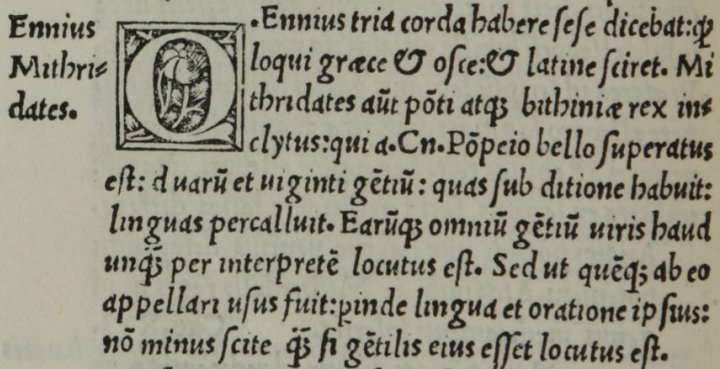 Ennius
Mithri⸗
dates.
Q.Ennius tria corda habere sese dicebat:ꝙ
loqui græce & osce:& latine sciret. Mi
thridates aūt pōti atqꝫ bithiniæ rex in⸗
clytus:qui a.Cn.Pōpeio bello superatus
est: duarū et uiginti gētiū: quas sub ditione habuit:
linguas percalluit. Earūqꝫ omniū gētiū uiris haud
unq̄ꝫ per interpretē locutus est. Sed ut quēqꝫ ab eo
appellari usus fuit:ꝓinde lingua et oratione ipsius:
nō minus scite q̄ꝫ si gētilis eius esset locutus est.